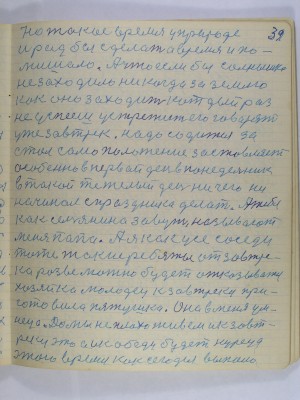 39
но такие время у природе
и ред бы сделат а время и по-
мишало. А что если бы солнышко
не заходило никогда за землю
как оно заходит каждый раз
не успеем устретит его говорят
уже завтрек. надо содится за
стол само положение заставляет
особенно в первай ден в понедельник
в такой тёплый ден ничего ни
начинал с праздника делат. А тибя
как селянина завут, называют
меня папа. А я как усе соседи
тоже так и ребяты от завтре-
ка розве можно будет отказыватся
хозяйка молодец к завтреку при-
готовила пятушка. Она в меня ум-
ница. Да мы неплохо живём и к завт-
реку это а к обеду будет курица
этого время как сегодня выпало